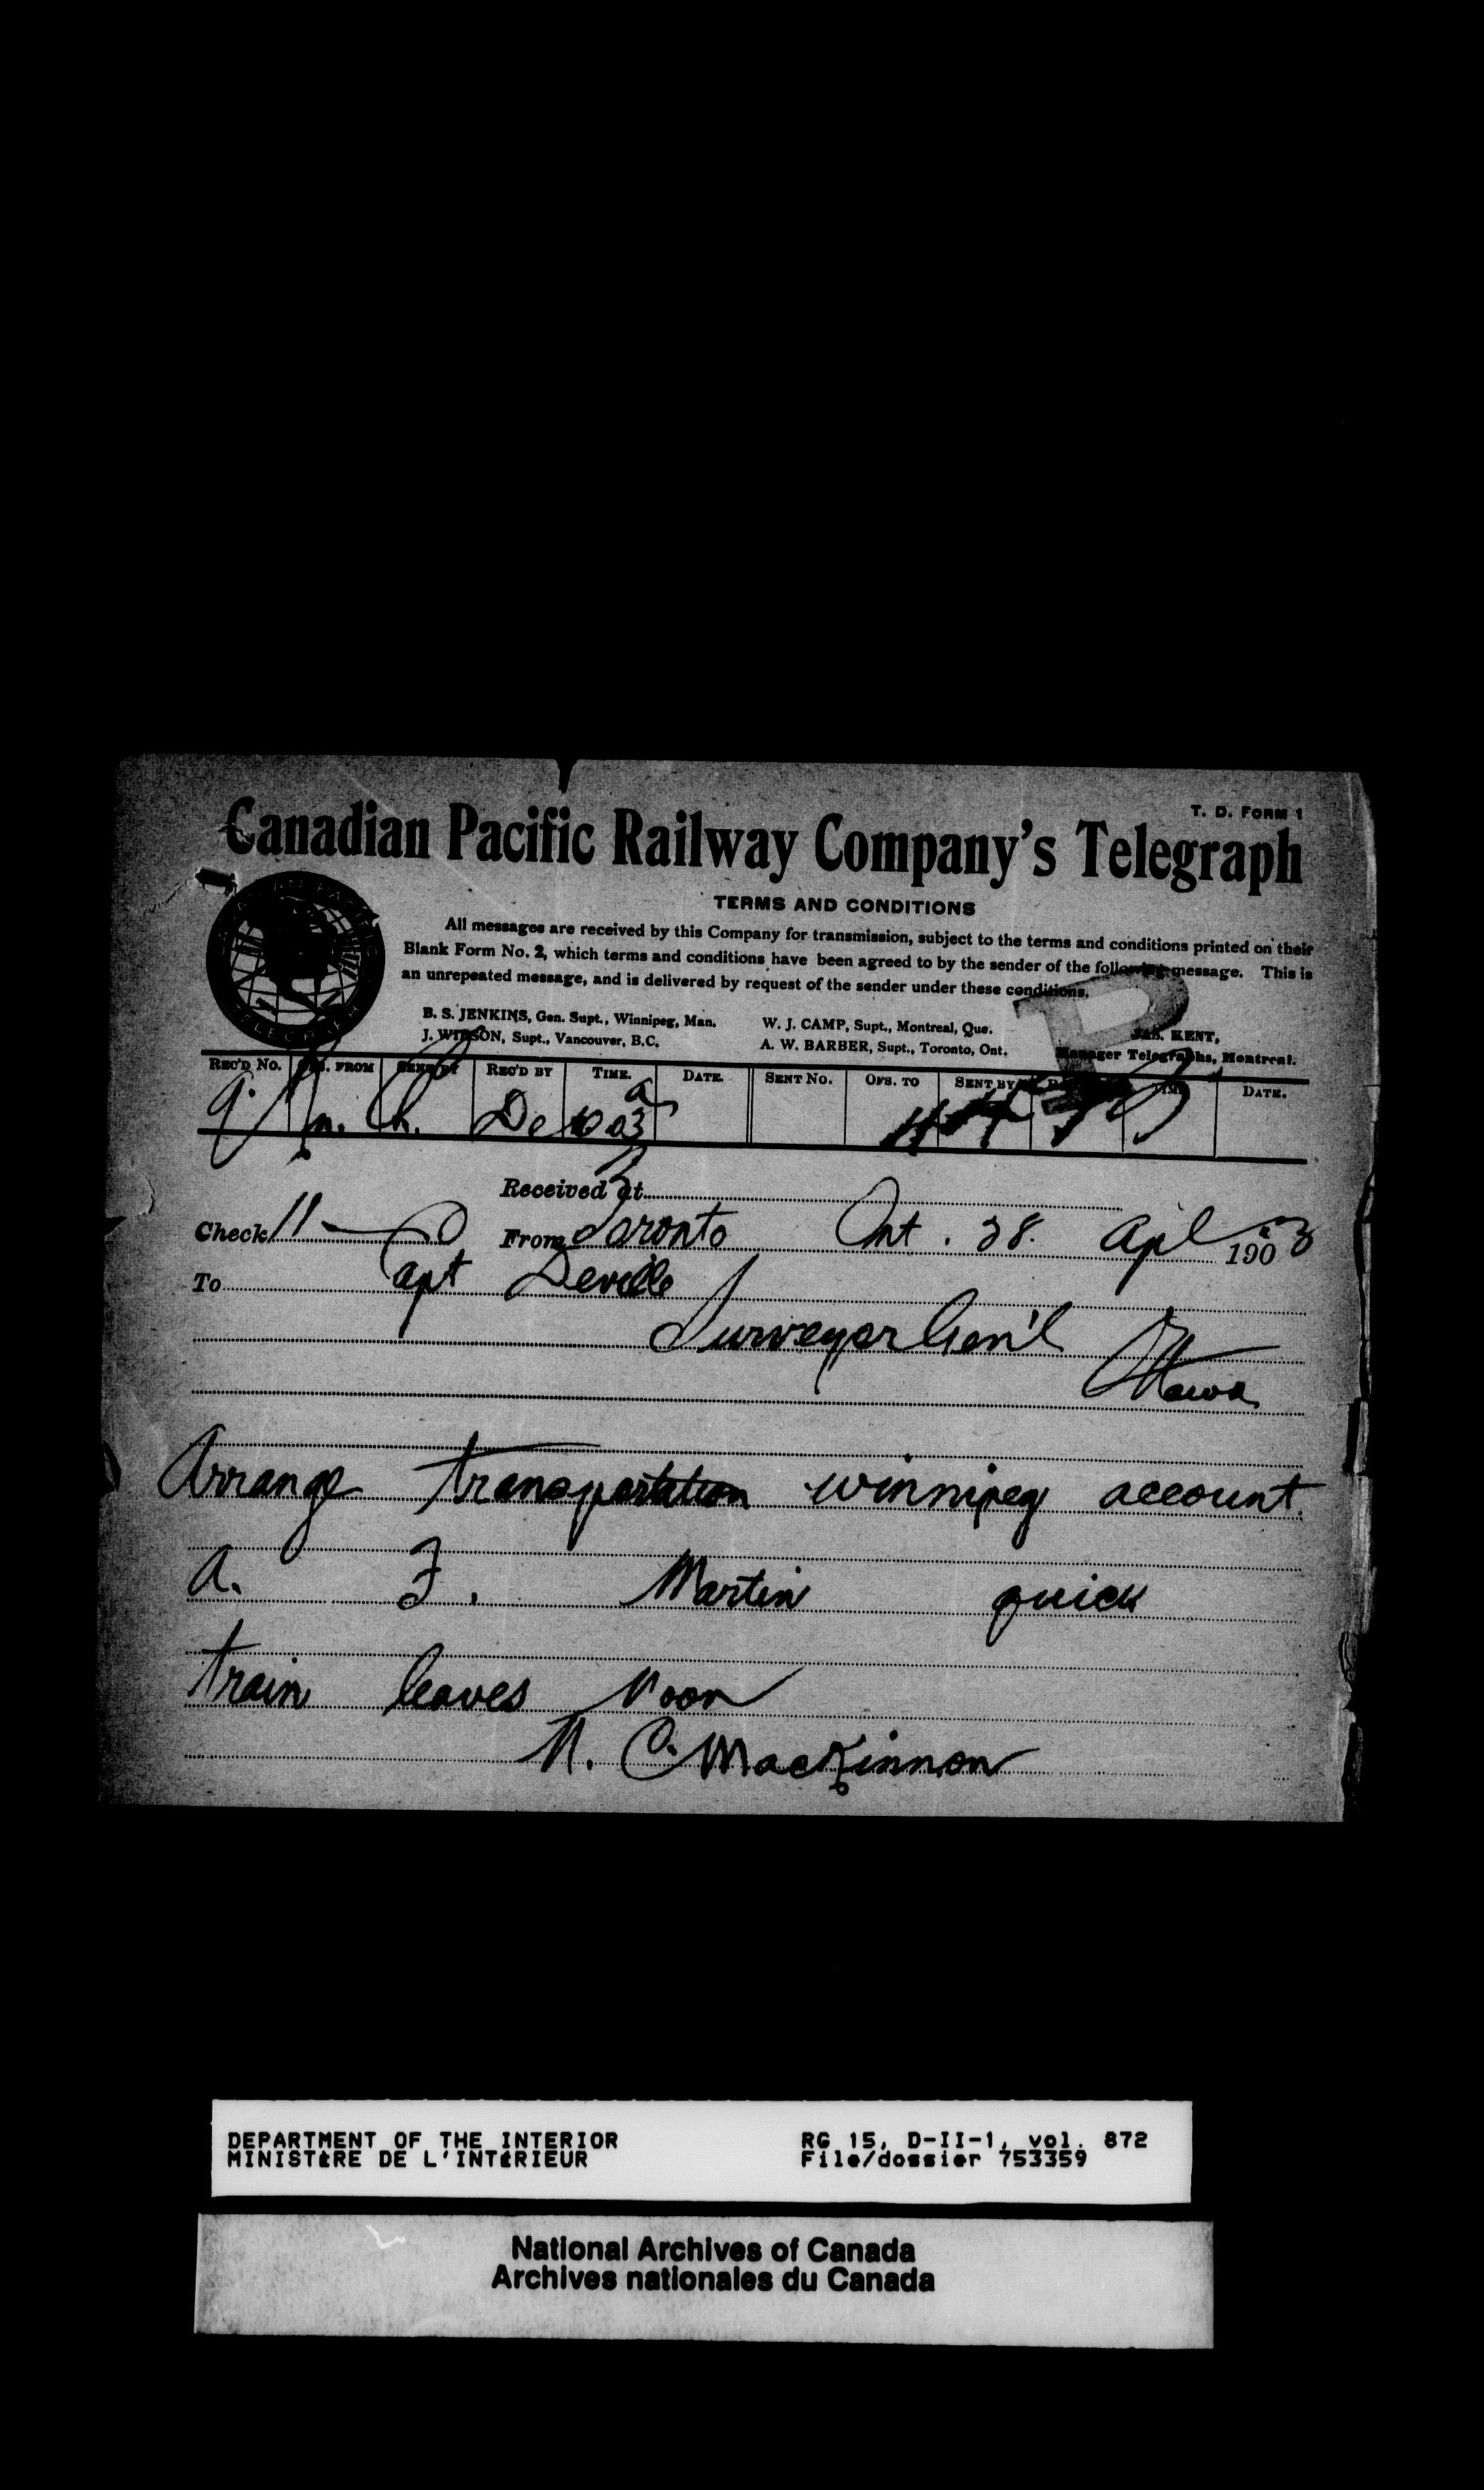 T. D. FORM 1
Canadian Pacific Railway Company's Telegraph
TERMS AND CONDITIONS
All messages are received by this Company for transmission, subject to the terms and conditions printed on their
Blank Form No. 2, which terms and conditions have been agreed to by the sender of the following message. This is
an unrepeated message, and is delivered by request of the sender under these conditions.
B. S. JENKINS, Gen. Supt., Winnipeg, Man.
W. J. CAMP, Supt., Montreal, Que.
JAS. KENT,
J. WILSON, Supt., Vancouver, B.C.
A. W. BARBER, Supt., Toronto, Ont.
Manager Telegraphs, Montreal.
REC'D NO. FROM SENT BY REC'D BY TIME. DATE. SENT NO. OFS. TO SENT BY TIME DATE.
De
Received at
Check 11 From Toronto Ont. 28. Apl 1903
To Capt Deville
Surveyor Gen'l
Ottawa
Arrange transportation winnipeg account
A. F. Martin quick
train leaves noon
N. C. MacKinnon
DEPARTMENT OF THE INTERIOR RG 15, D-II-1, vol. 872
MINISTÈRE DE L'INTÉRIEUR File/dossier 753359
National Archives of Canada
Archives nationales du Canada